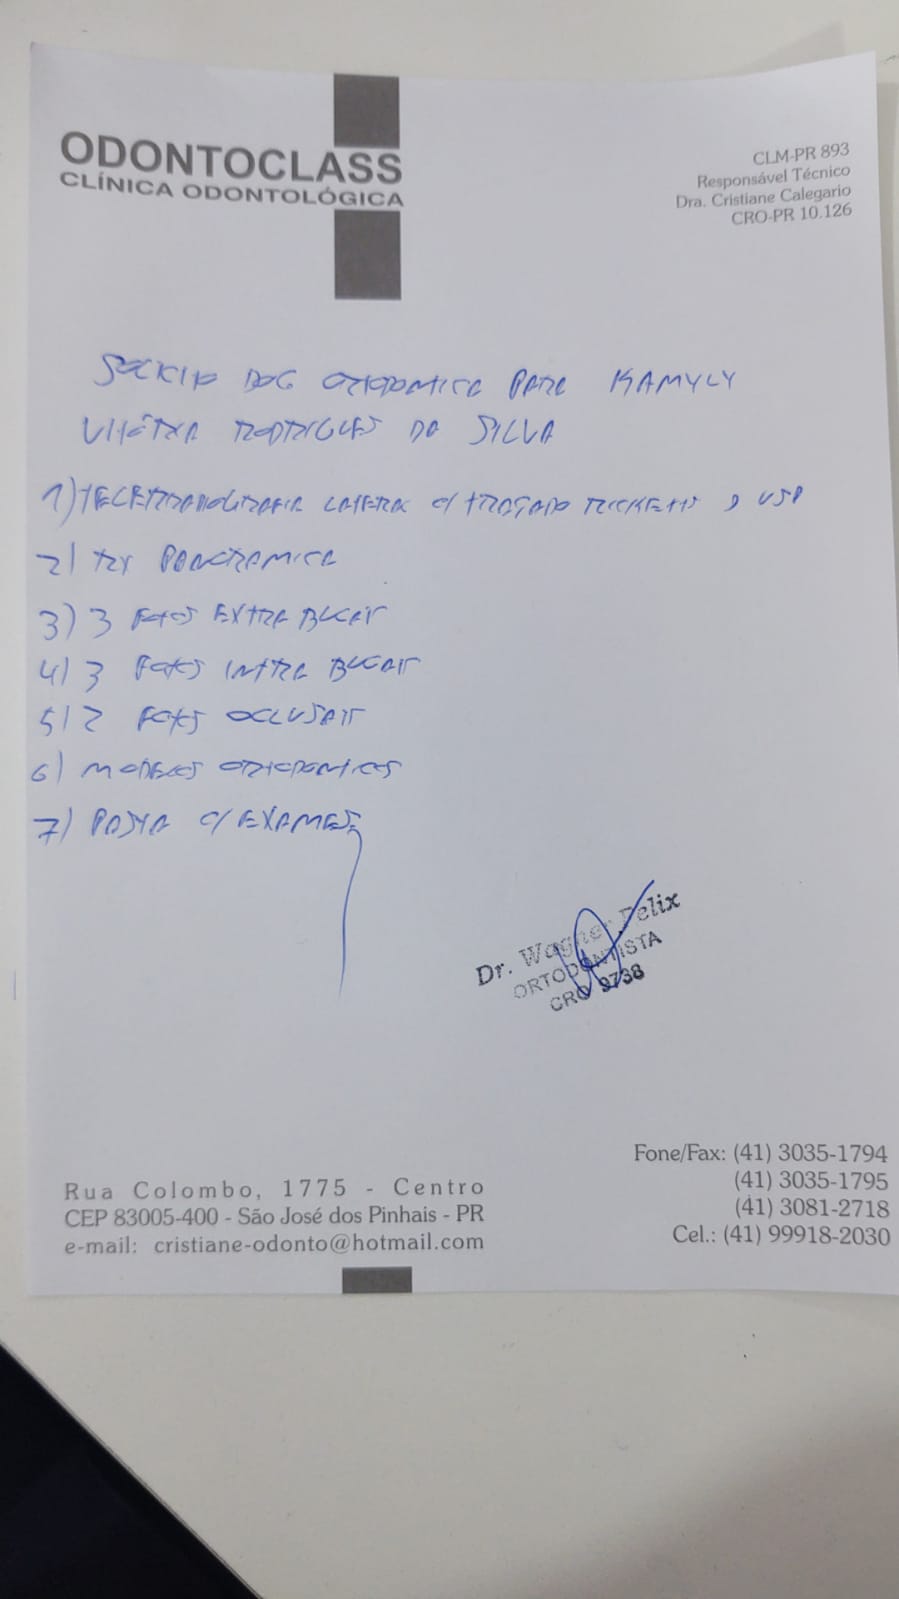 ODONTOCLASS
CLÍNICA ODONTOLÓGICA
CLM-PR 893
Responsável Técnico
Dra. Cristiane Calegario
CRO-PR 10.126
SOLICITO DOC ORTODONTICA PARA KAMYLY
VITÓRIA RODRIGUES DA SILVA
1) TELERRADIOGRAFIA LATERAL C/ TRAÇADO RICKETTS USP
2) RX PANORAMICA
3) 3 FOTOS EXTRA BUCAIS
4) 3 FOTOS INTRA BUCAIS
5) 2 FOTOS OCLUSAIS
6) MODELOS ORTODONTICOS
7) PASTA C/ EXAMES
Dr. Wagner Felix
ORTODONTISTA
CRO 9738
Rua Colombo, 1775 - Centro
CEP 83005-400 - São José dos Pinhais - PR
e-mail: cristiane-odonto@hotmail.com
Fone/Fax: (41) 3035-1794
(41) 3035-1795
(41) 3081-2718
Cel.: (41) 99918-2030